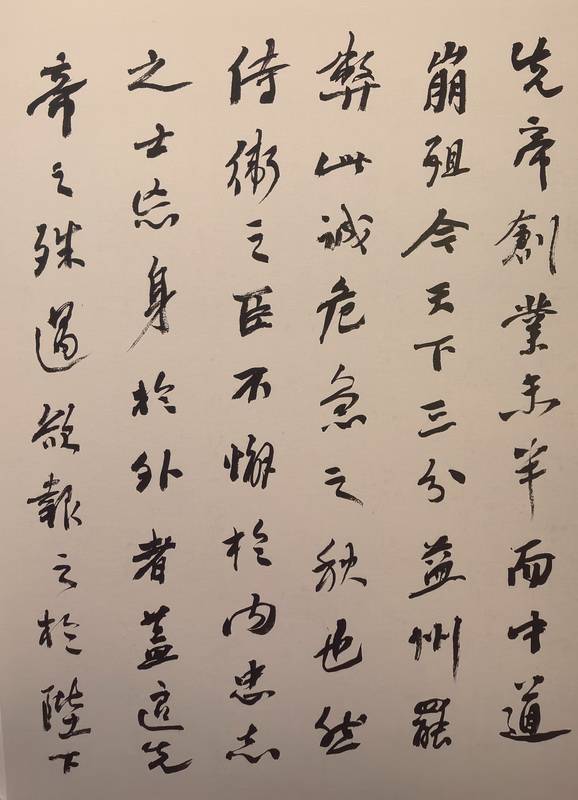 先帝創業未半而中道
崩殂今天下三分益州罷
弊此誠危急之秋也然
侍衛之臣不懈於内忠志
之士忘身於外者蓋追先
帝之殊遇欲報之於陛下